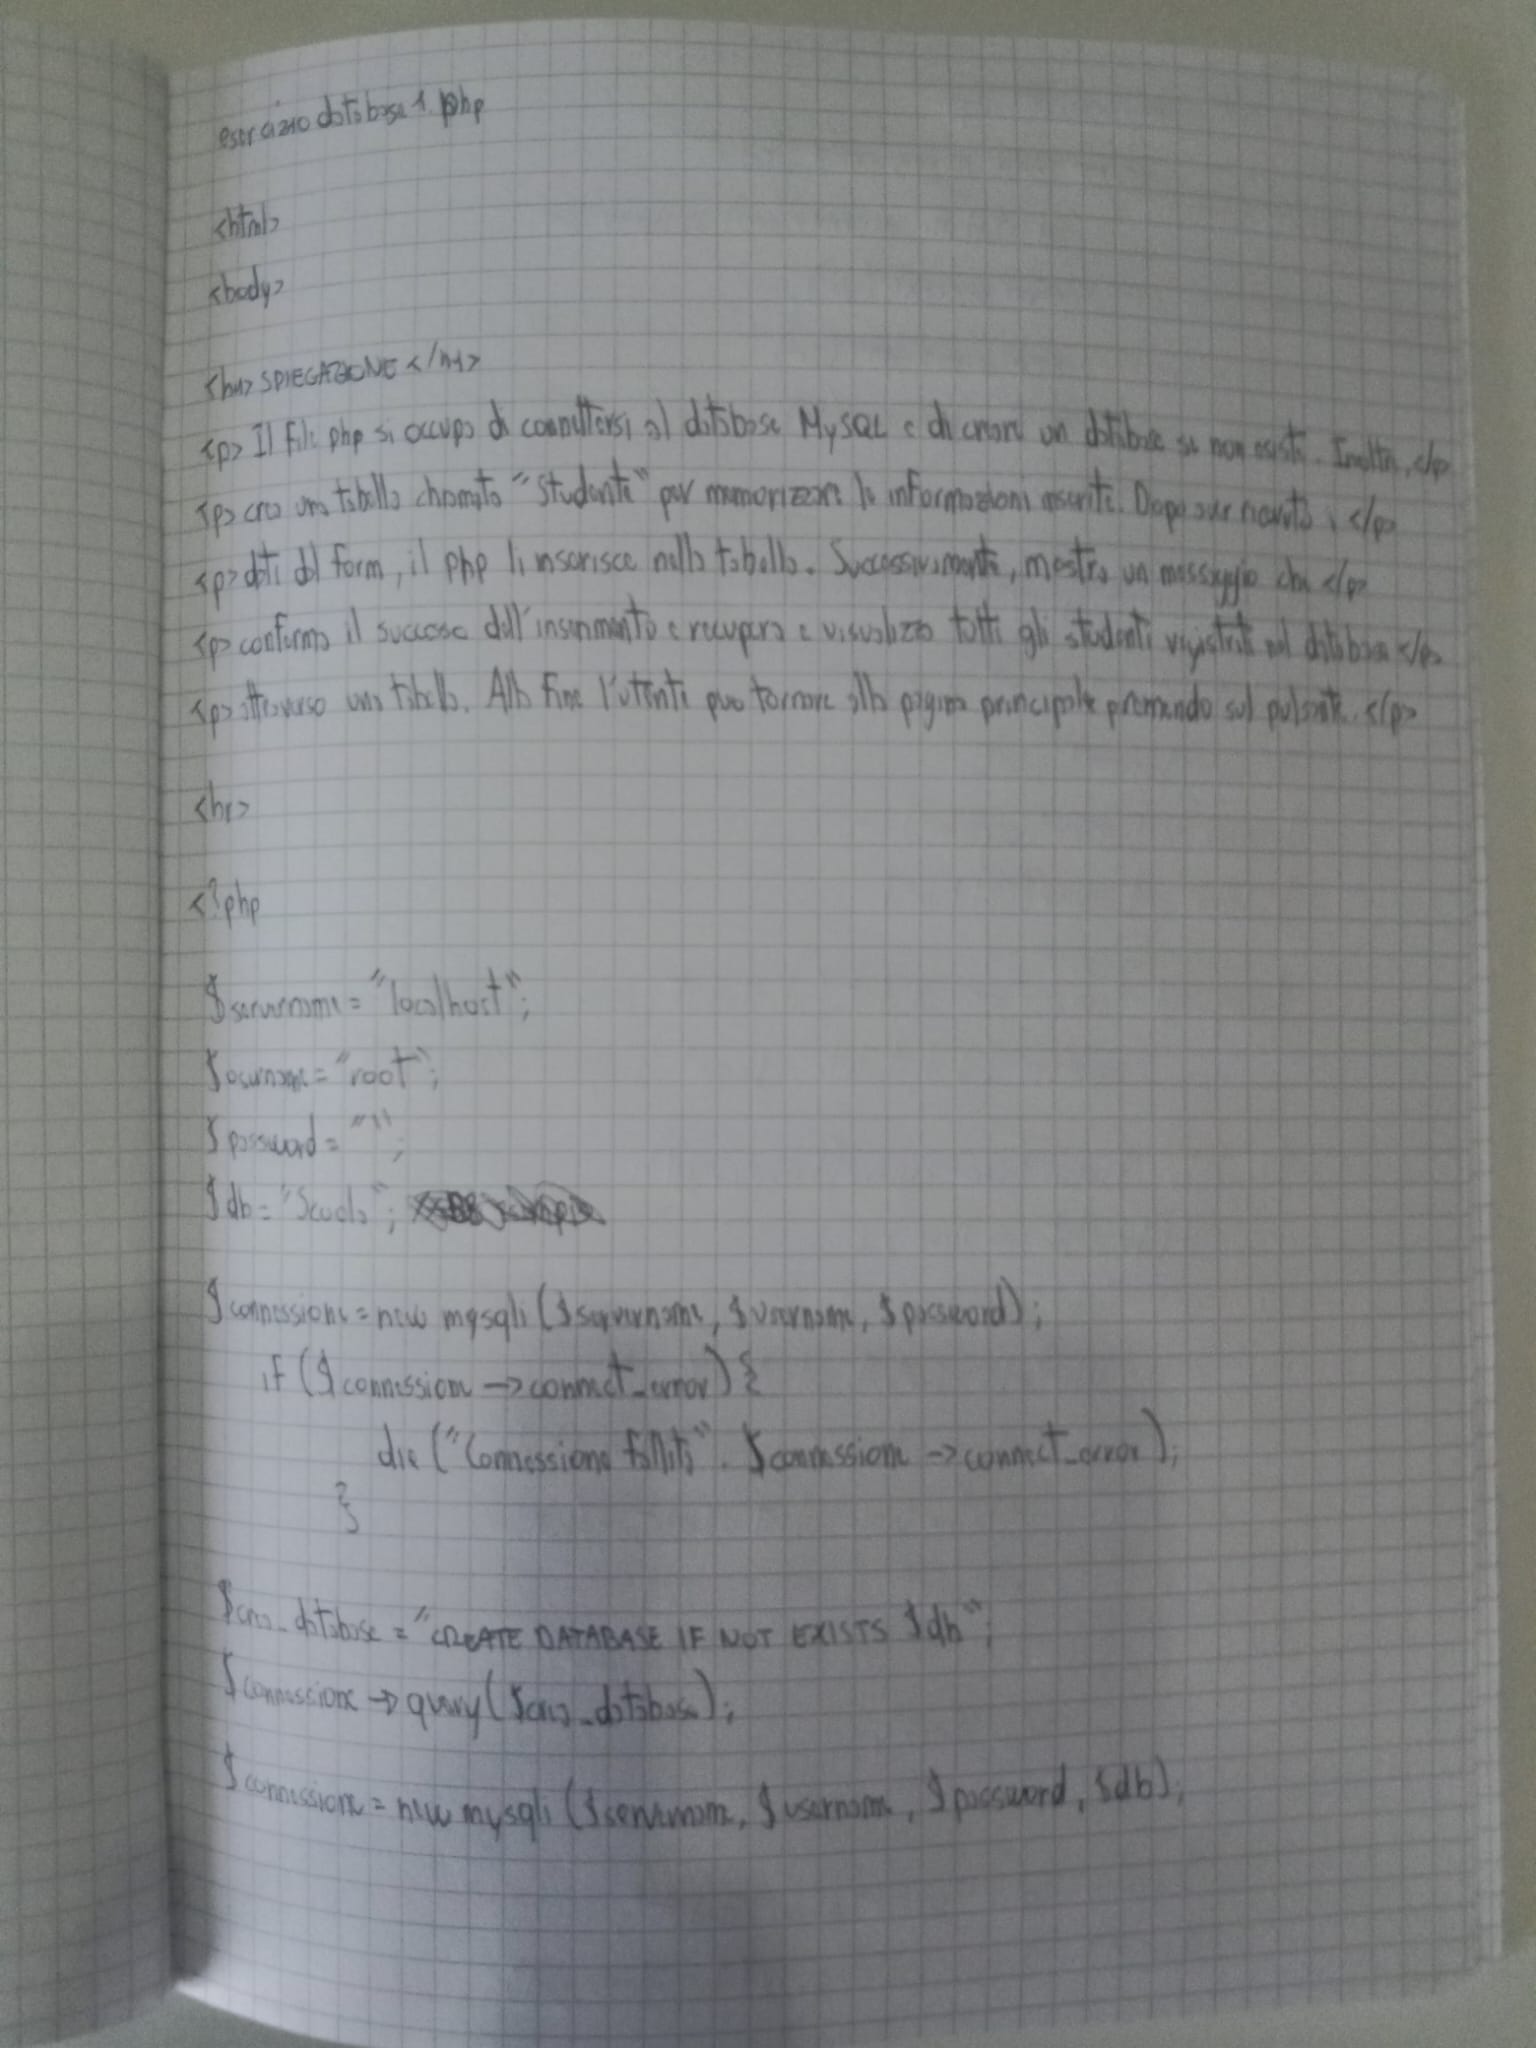 esercizio database 1.php
<html>
<body>
<h1> SPIEGAZIONE </h1>
<p> Il file php si occupa di connettersi al database MySQL e di creare un database se non esiste. Inoltre, </p>
<p> crea una tabella chiamata "studente" per memorizzare le informazioni inserite. Dopo aver ricevuto i </p>
<p> dati dal form, il php li inserisce nella tabella. Successivamente, mostra un messaggio che </p>
<p> conferma il successo dell'inserimento e recupera e visualizza tutti gli studenti registrati nel database </p>
<p> attraverso una tabella. Alla fine l'utente può tornare alla pagina principale premendo sul pulsante. </p>
<hr>
<?php
$servername = "localhost";
$username = "root";
$password = "";
$db = "Scuola";
$connessione = new mysqli ($servername, $username, $password);
if ($connessione -> connect_error) {
die ("Connessione fallita". $connessione -> connect_error);
}
$crea_database = "CREATE DATABASE IF NOT EXISTS $db";
$connessione -> query ($crea_database);
$connessione = new mysqli ($servername, $username, $password, $db);